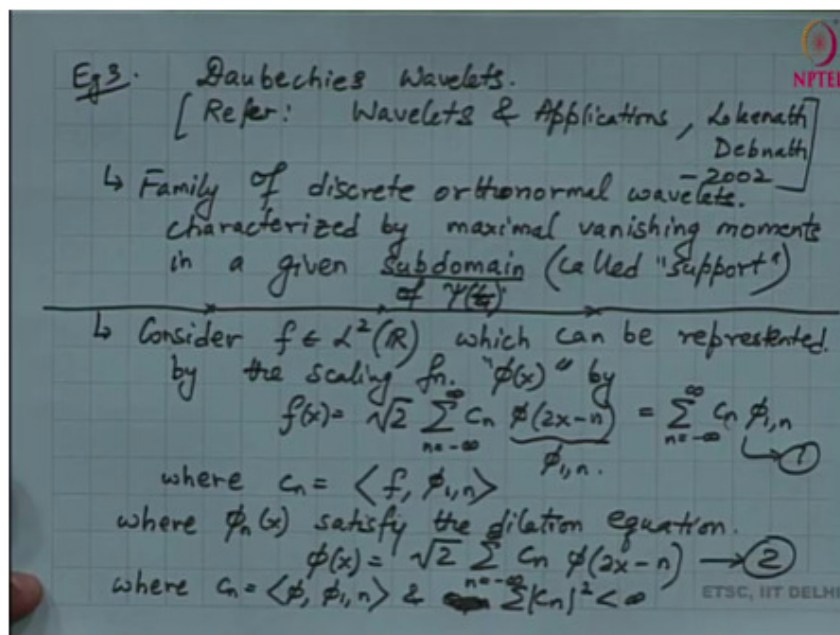 Eg 3. Daubechies Wavelets.
NPTEL
[Refer: Wavelets & Applications, Lokenath
Debnath
- 2002]
↳ Family of discrete orthonormal wavelets.
characterized by maximal vanishing moments
in a given subdomain (called "support")
of ψ(t)
↳ Consider f ∈ L²(ℝ) which can be represented.
by the scaling fn. "φ(x)" by
f(x) = √2 ∑_{n=-∞}^{∞} cₙ φ(2x-n) = ∑_{n=-∞}^{∞} cₙ φ₁,ₙ → ①
φ₁,ₙ.
where cₙ = ⟨f, φ₁,ₙ⟩
where φₙ(x) satisfy the dilation equation.
φ(x) = √2 ∑_{n=-∞}^{∞} cₙ φ(2x-n) → ②
where cₙ = ⟨φ, φ₁,ₙ⟩ & ∑|cₙ|² < ∞
ETSC, IIT DELHI